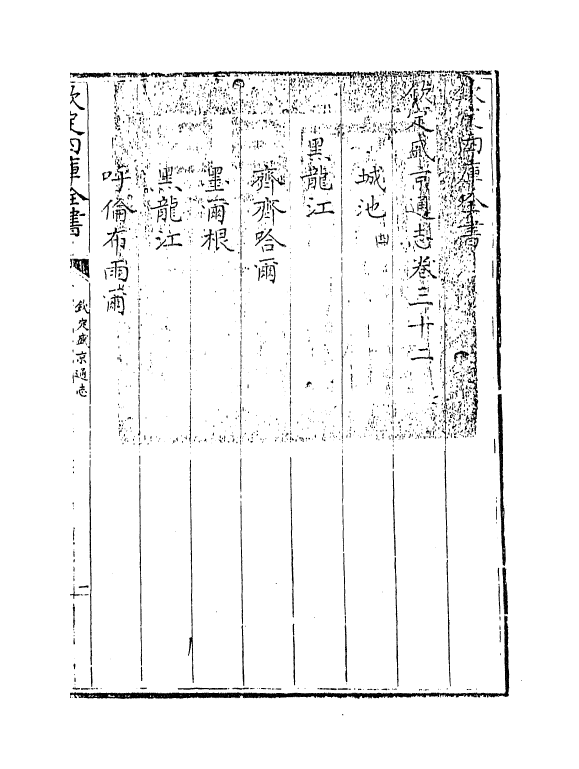 欽定四庫全書
欽定盛京通志卷三十二
城池四
黑龍江
齊齊哈爾
墨爾根
黑龍江
呼倫布雨爾
欽定四庫全書
欽定盛京通志
一